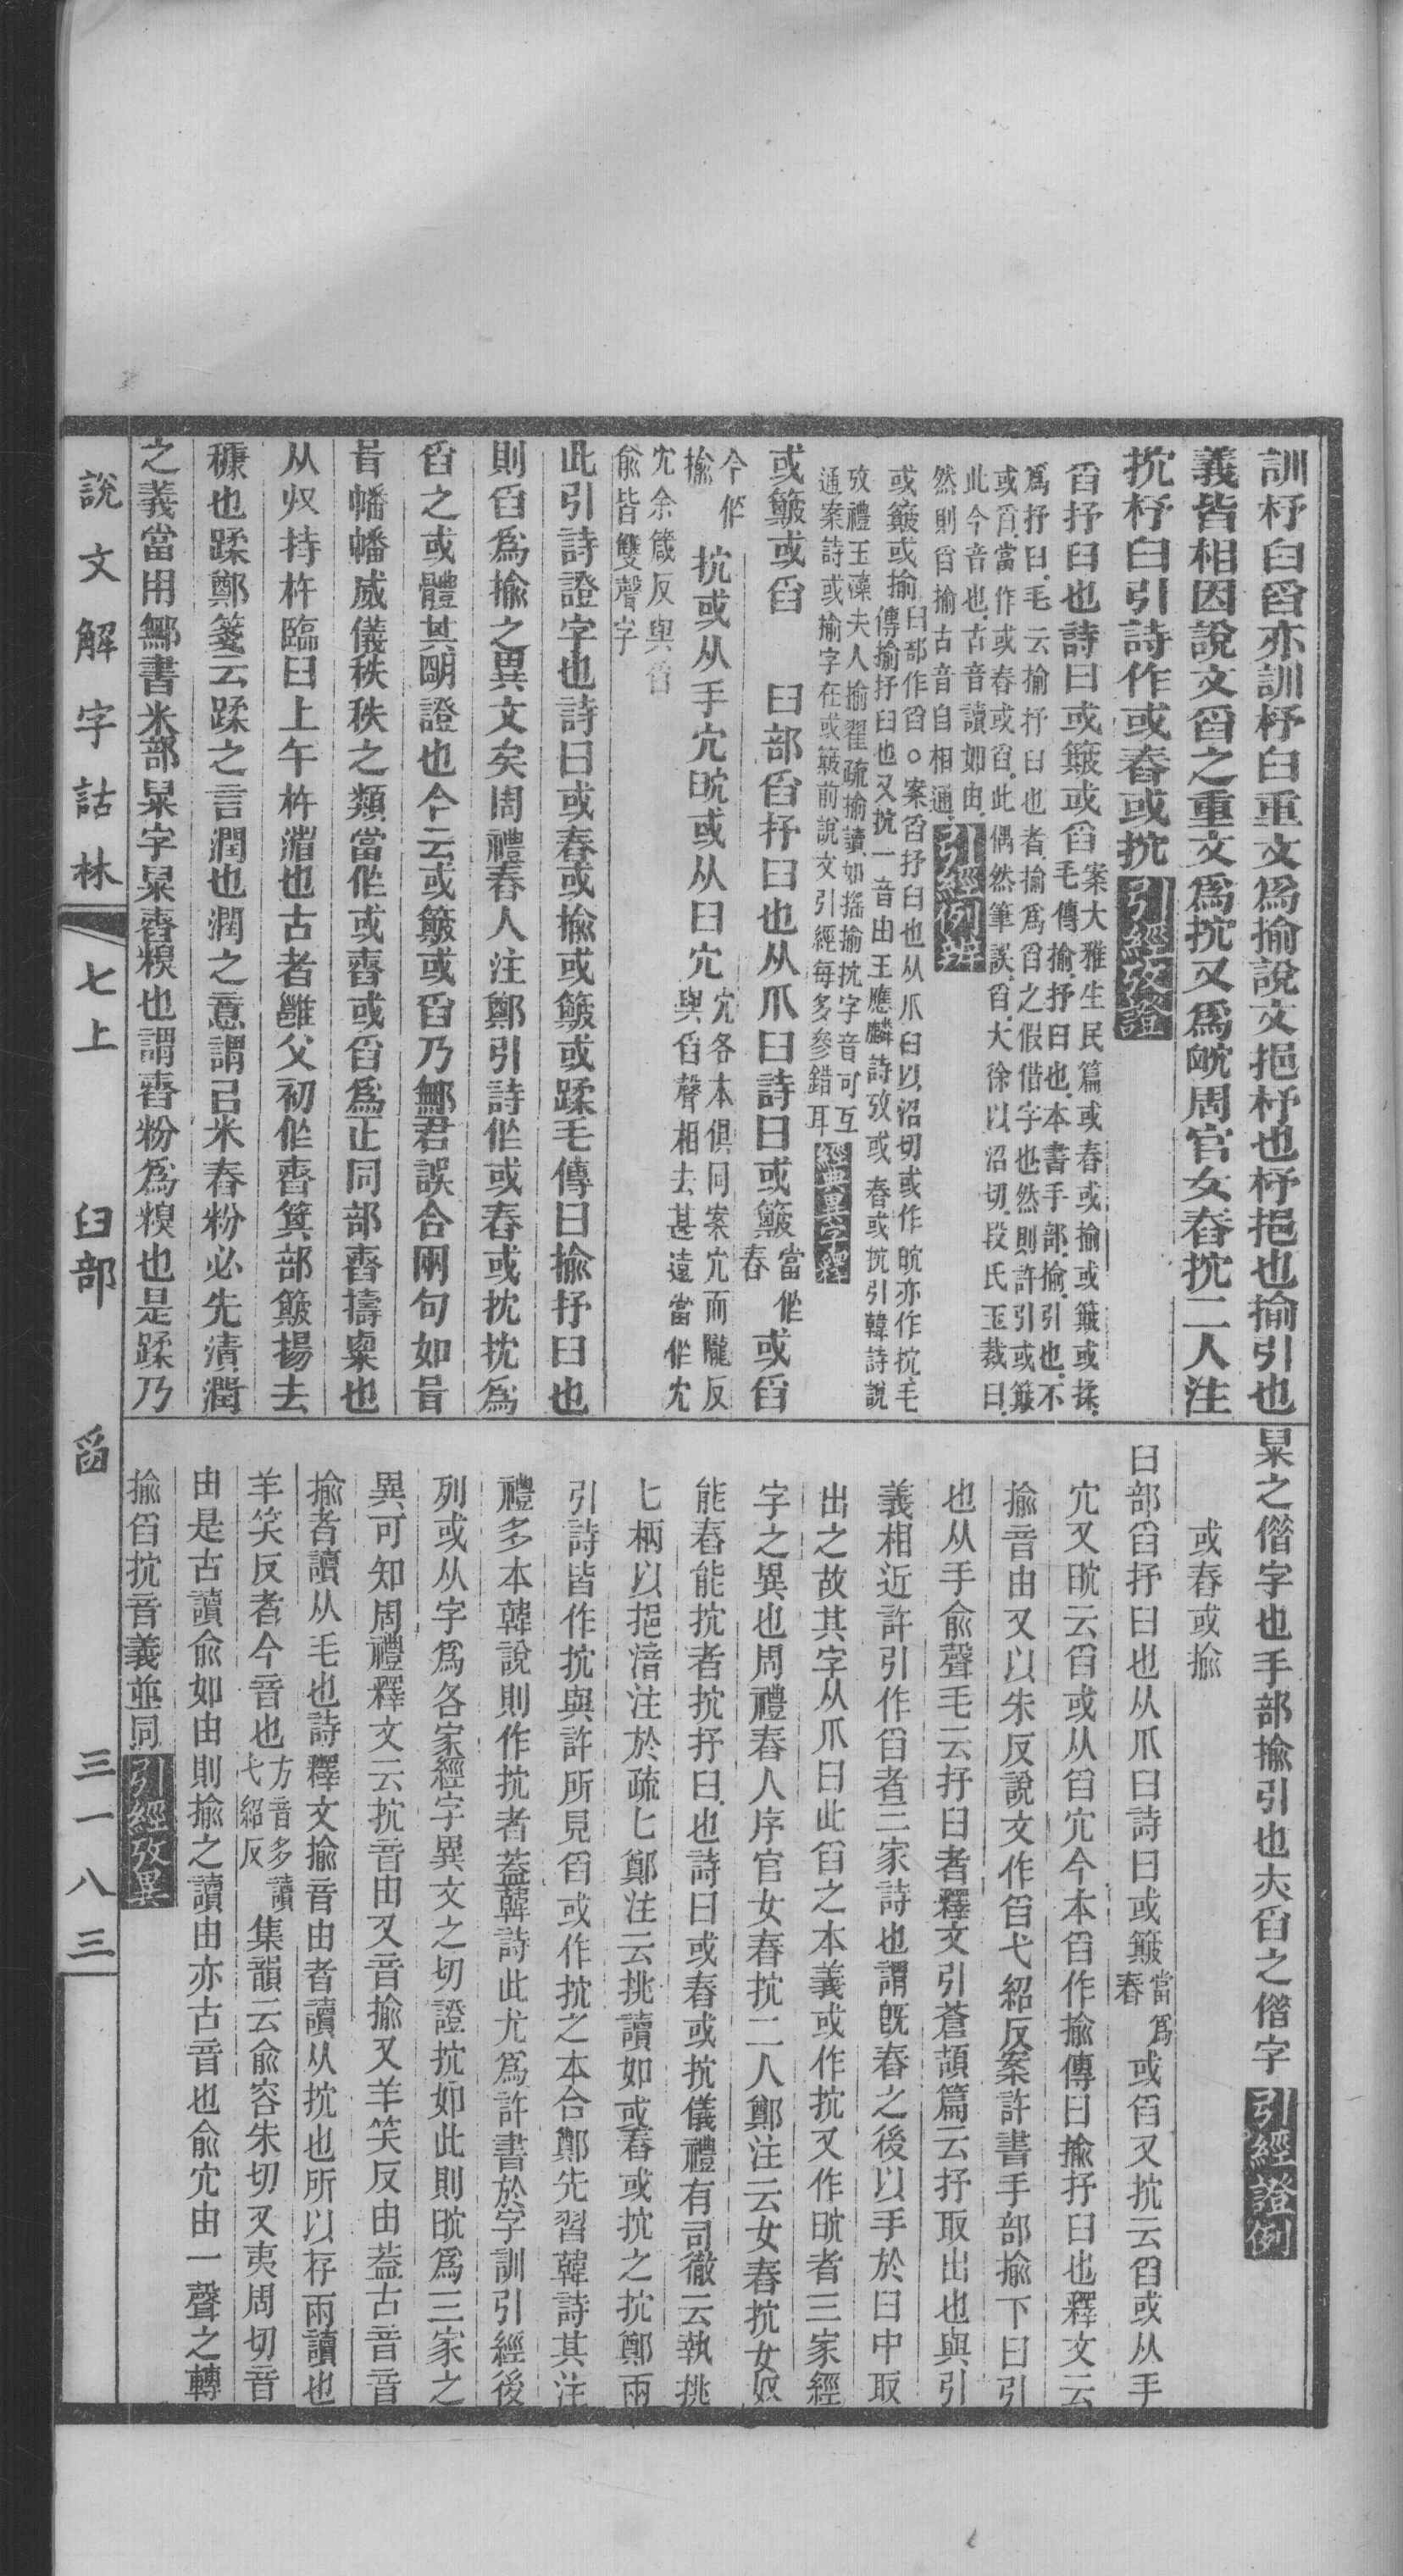 訓杼臼舀亦訓杼臼重文爲揄說文挹杼也杼挹也揄引也
義皆相因說文舀之重文爲抗又爲㿸周官女舂抗二人注
抗杼臼引詩作或舂或抗引經攷證
舀抒臼也詩曰或簸或舀案大雅生民篇或舂或揄或簸或揉
毛傳揄抒臼也本書手部揄引也不
爲抒臼毛云揄抒臼也者揄爲舀之假借字也然則許引或簸
或舀當作或舂或舀此偶然筆誤舀大徐以沼切段氏玉裁曰
此今音也古音讀如由
然則舀揄古音自相通引經例辨
或簸或揄臼部作舀○案舀抒臼也从爪臼以沼切或作㿸亦作抗毛
傳揄抒臼也又抗一音由王應麟詩攷或舂或抗引韓詩說
攷禮玉藻夫人揄翟疏揄讀如搖揄抗字音可互
通案詩或揄字在或簸前說文引經每多參錯耳經典異字釋
或簸或舀　臼部舀抒臼也从爪臼詩曰或簸當作舂或舀
今作揄　抗或从手宂㿸或从臼宂宂各本俱同案宂而隴反
與舀聲相去甚遠當作冘
冘余箴反與舀
俞皆雙聲字
此引詩證字也詩曰或舂或揄或簸或蹂毛傳曰揄抒臼也
則舀爲揄之異文矣周禮舂人注鄭引詩作或舂或抌抌爲
舀之或體其朙證也今云或簸或舀乃鄦君誤合兩句如昔
昔幡幡威儀秩秩之類當作或舂或舀爲正同部舂擣粟也
从収持杵臨臼上午杵省也古者雝父初作舂箕部簸揚去
穅也蹂鄭箋云蹂之言潤也潤之意謂㠯米舂粉必先漬潤
之義當用鄦書米部糗字糗舂糗也謂舂粉爲糗也是蹂乃
糗之偕字也手部揄引也夫舀之偕字引經證例
或舂或揄
臼部舀抒臼也从爪臼詩曰或簸當爲舂或舀又抗云舀或从手
宂又㿸云舀或从臼宂今本舀作揄傳曰揄抒臼也釋文云
揄音由又以朱反說文作舀弋紹反案許書手部揄下曰引
也从手俞聲毛云抒臼者釋文引蒼頡篇云抒取出也與引
義相近許引作舀者三家詩也謂旣舂之後以手於臼中取
出之故其字从爪臼此舀之本義或作抗又作㿸者三家經
字之異也周禮舂人序官女舂抗二人鄭注云女舂抗女奴
能舂能抗者抗抒臼也詩曰或舂或抗儀禮有司徹云執挑
匕柄以挹湆注於疏匕鄭注云挑讀如或舂或抗之抗鄭兩
引詩皆作抗與許所見舀或作抗之本合鄭先習韓詩其注
禮多本韓說則作抗者葢韓詩此尤爲許書於字訓引經後
列或从字爲各家經字異文之切證抗如此則㿸爲三家之
異可知周禮釋文云抗音由又音揄又羊笑反由葢古音音
揄者讀从毛也詩釋文揄音由者讀从抗也所以存兩讀也
羊笑反者今音也方音多讀弋紹反集韻云俞容朱切又夷周切音
由是古讀俞如由則揄之讀由亦古音也俞宂由一聲之轉
揄舀抗音義並同引經攷異
說文解字詁林　七上　臼部　舀　三一八三